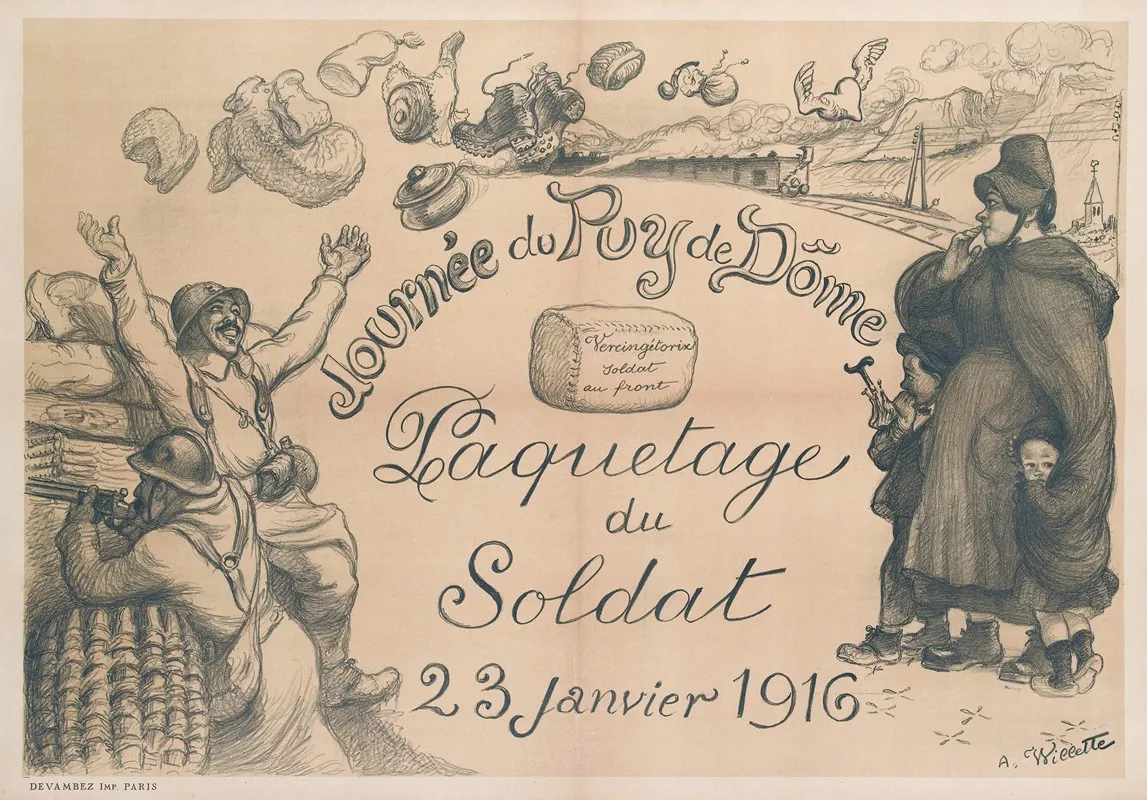 Journée du Puy de Dôme
Vercingétorix
Soldat
au front
Paquetage
du
Soldat
23 Janvier 1916
A. Willette
DEVAMBEZ IMP. PARIS